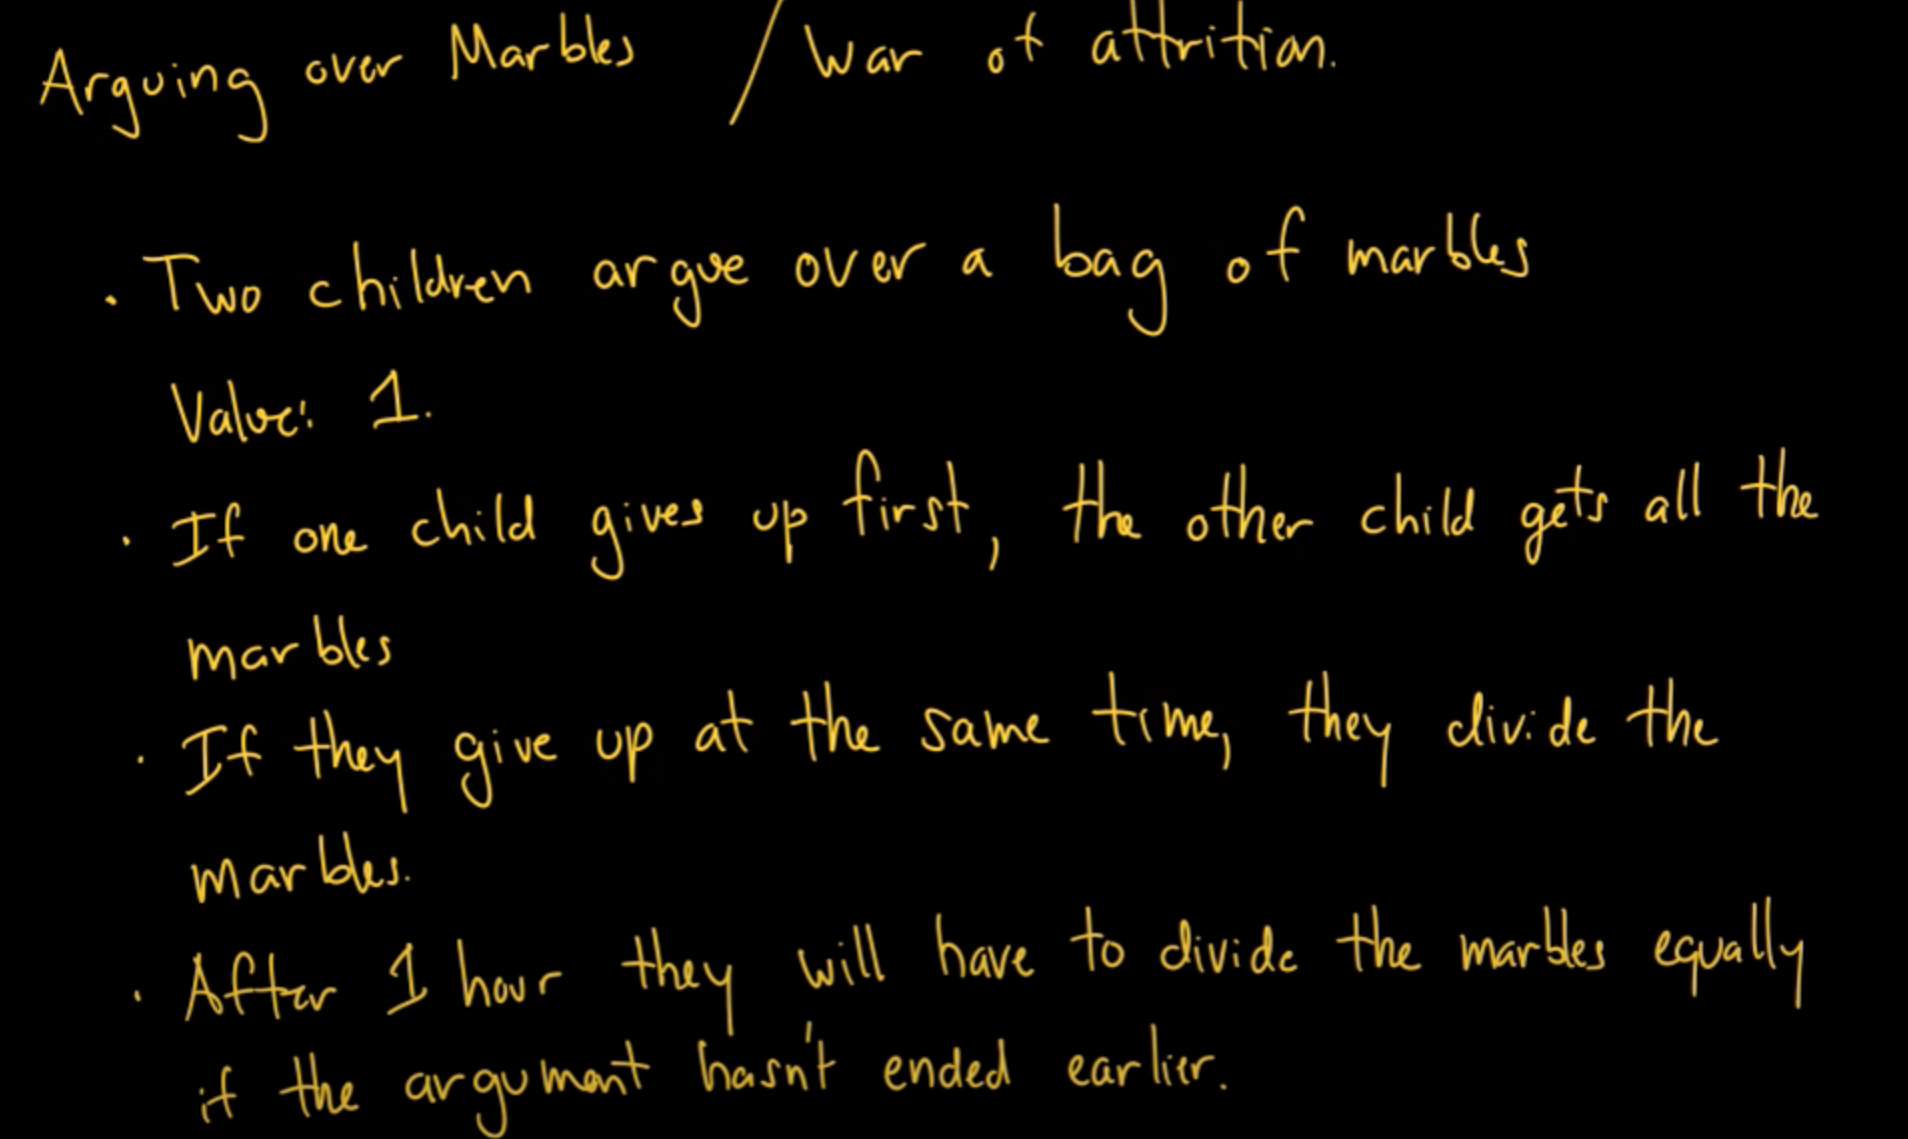 Arguing over Marbles / War of attrition.
· Two children argue over a bag of marbles
Value: 1.
· If one child gives up first, the other child gets all the
marbles
· If they give up at the same time, they divide the
marbles.
· After 1 hour they will have to divide the marbles equally
if the argument hasn't ended earlier.